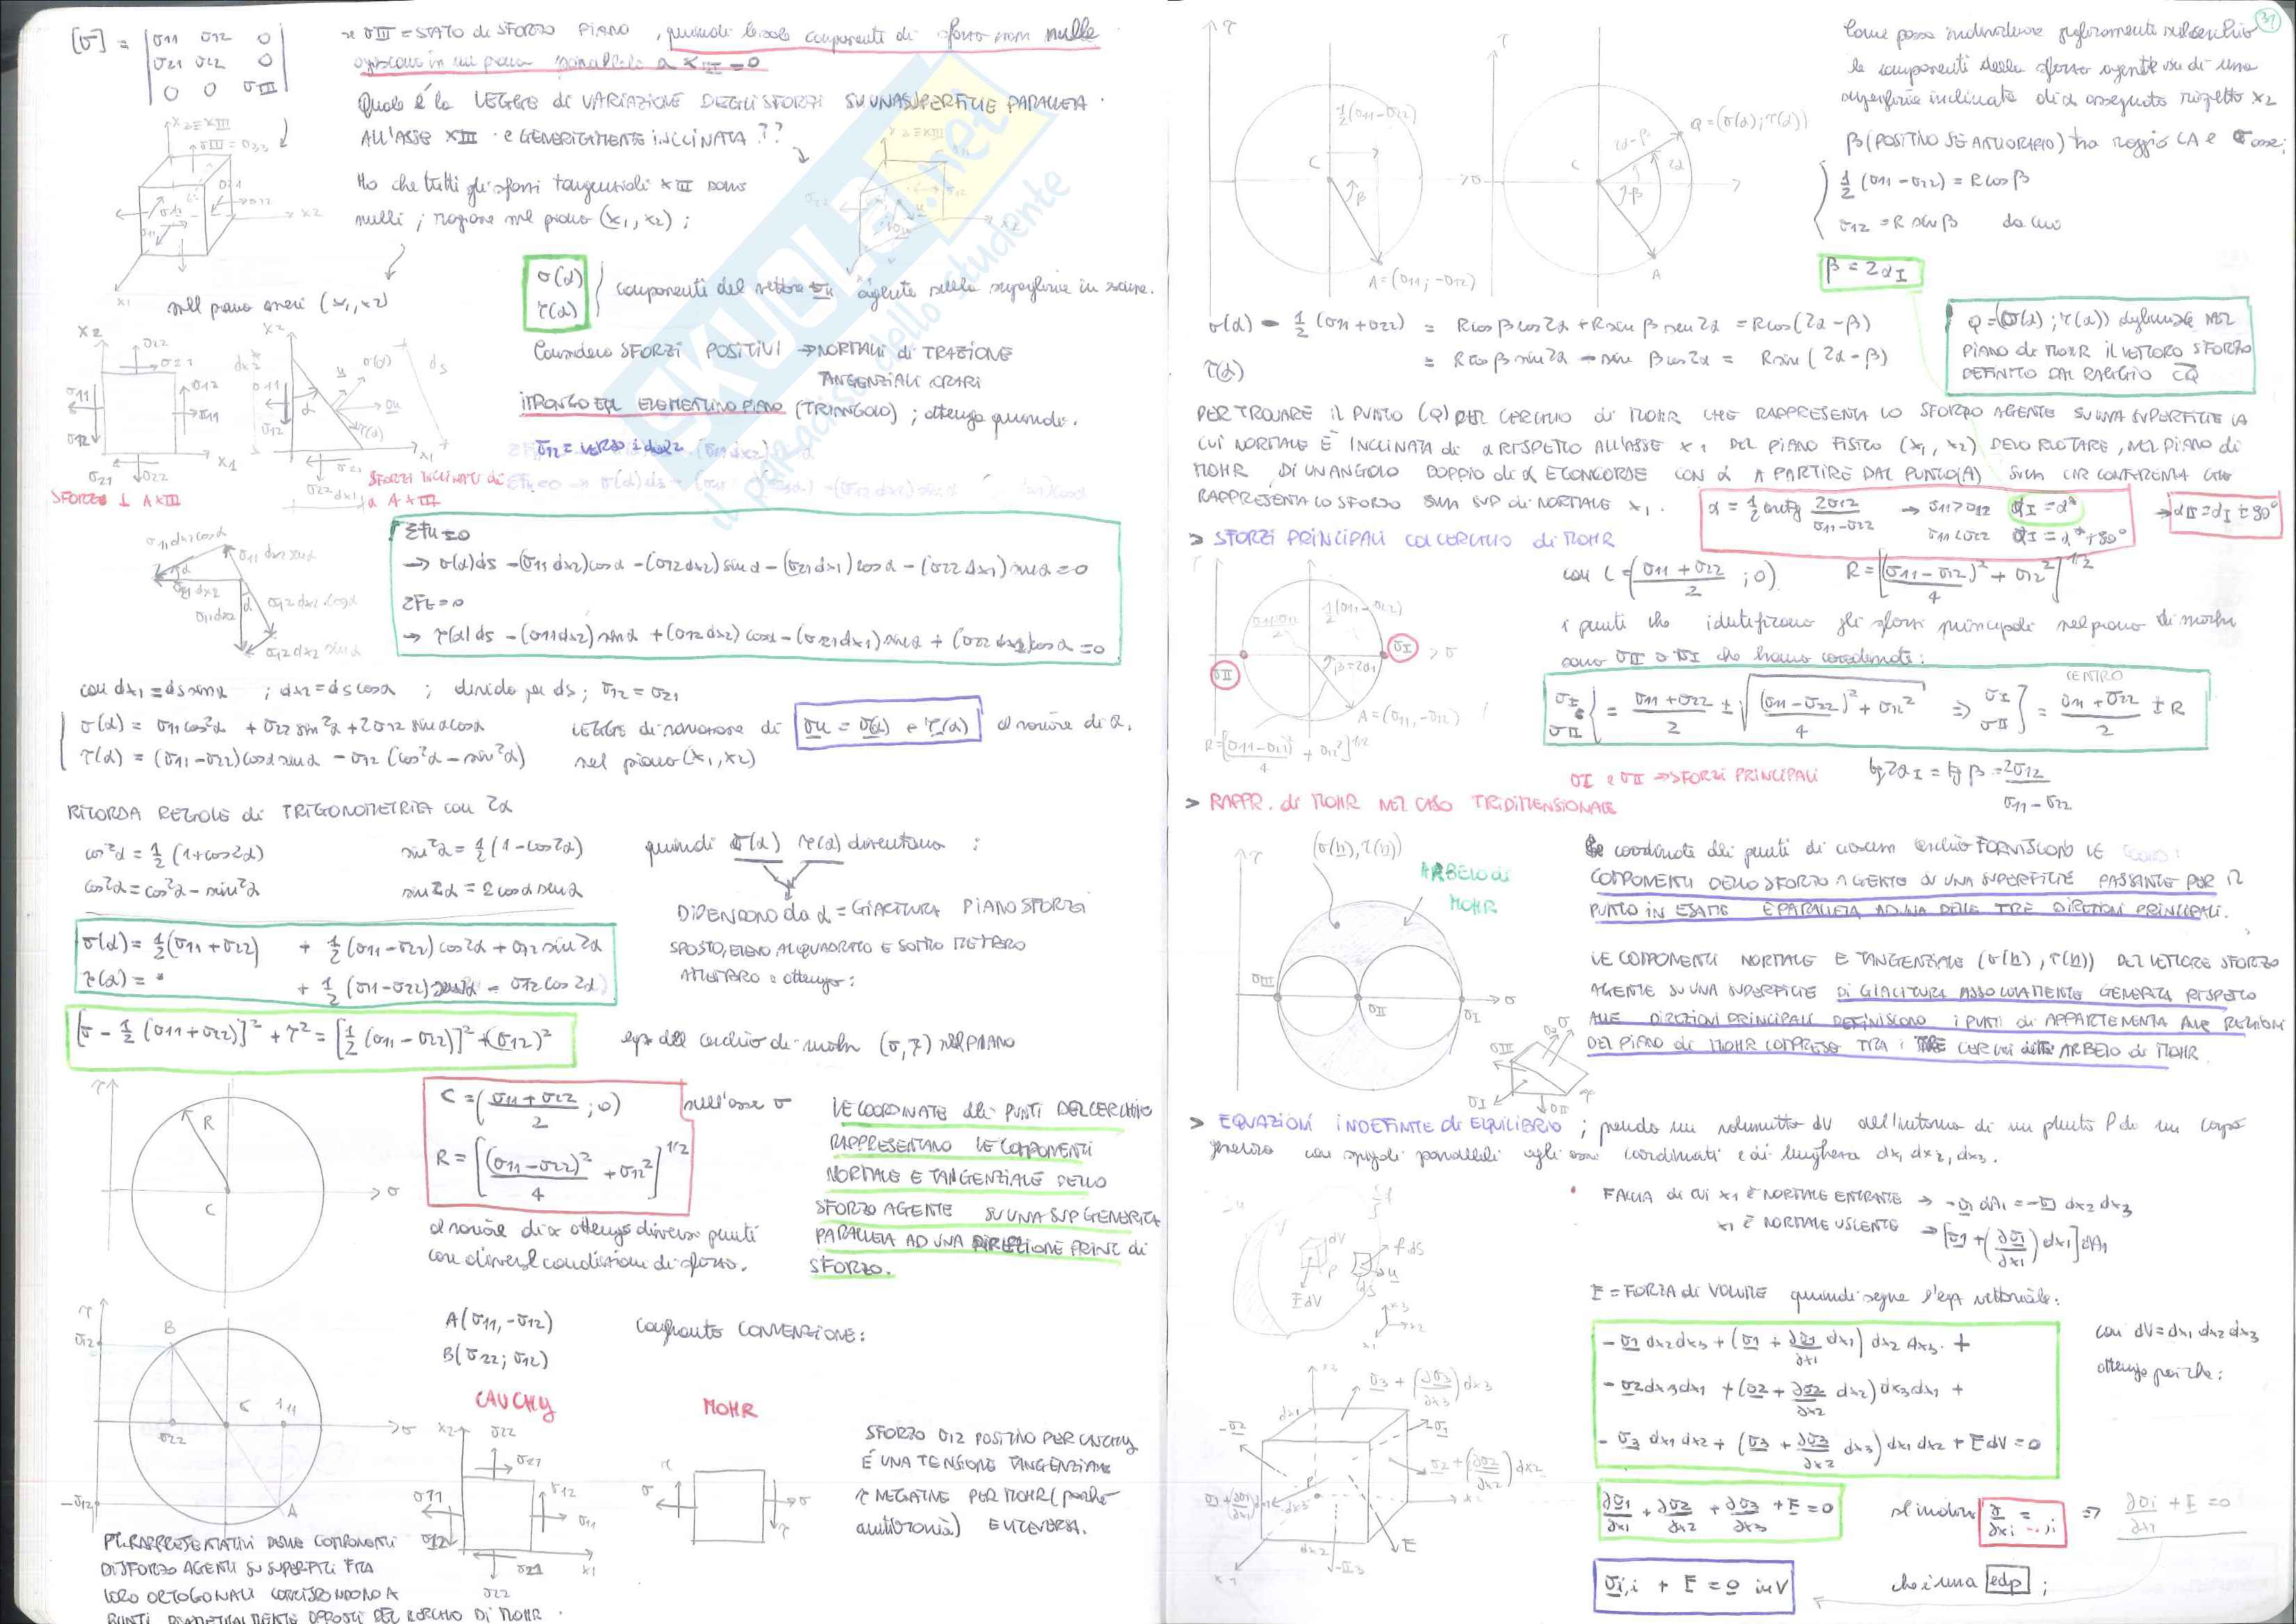 [σ] = | σ11 σ12 0 |
| σ21 σ22 0 |
| 0 0 σIII |
σIII = STATO di SFORZO PIANO, quindi le sole componenti di sforzo non nulle
agiscono in un piano parallelo a xIII = 0
Quale è la LEGGE di VARIAZIONE DEGLI SFORZI SU UNA SUPERFICIE PARALLELA
ALL'ASSE XIII e GENERICAMENTE INCLINATA??
Ho che tutti gli sforzi tangenziali xIII sono
nulli; ragiono nel piano (x1, x2);
nel piano (x1, x2)
σ(α)
τ(α)
componenti del vettore σn agente sulla superficie in
Considero SFORZI POSITIVI → NORMALI di TRAZIONE
TANGENZIALI ORARI
IMPONGO EQL ELEMENTINO PIANO (TRIANGOLO); ottengo quindi.
SFORZO ⊥ A XIII
SFORZI INCLINATI di
α A XIII
ΣFn=0
→ σ(α)ds - (σ11dx2)cosα - (σ12dx2)sinα - (σ21dx1)cosα - (σ22dx1)sinα = 0
ΣFt=0
→ τ(α)ds - (σ11dx2)sinα + (σ12dx2)cosα - (σ21dx1)sinα + (σ22dx2)cosα = 0
con dx1 = ds sinα ; dx2 = ds cosα ; divido per ds ; σ12 = σ21
σ(α) = σ11cos²α + σ22sin²α + 2σ12 sinα cosα
τ(α) = (σ11-σ22)cosα sinα - σ12(cos²α - sin²α)
LEGGE di variazione di σn = σ(α) e τ(α) al variare di α.
nel piano (x1, x2)
RICORDA REGOLE di TRIGONOMETRIA con 2α
cos²α = ½(1+cos2α) sin²α = ½(1-cos2α)
cos2α = cos²α - sin²α sin2α = 2cosα senα
quindi σ(α) τ(α) diventano :
DIPENDONO da α = GIACITURA PIANO SFORZI
SPOSTO, ELEVO AL QUADRATO E SOMMO MEMBRO
A MEMBRO e ottengo:
σ(α) = ½(σ11+σ22) + ½(σ11-σ22)cos2α + σ12 sin2α
τ(α) = " + ½(σ11-σ22)sen2α - σ12cos2α
[σ - ½(σ11+σ22)]² + τ² = [½(σ11-σ22)]² + (σ12)²
eqz del cerchio di mohr (σ,τ) nel PIANO
C = (σ11+σ22 / 2 ; 0) sull'asse σ
R = [(σ11-σ22)²/4 + σ12²]^1/2
al variare di α ottengo diversi punti
con diverse condizioni di sforzo.
LE COORDINATE dei PUNTI DEL CERCHIO
RAPPRESENTANO LE COMPONENTI
NORMALE E TANGENZIALE DELLO
SFORZO AGENTE SU UNA SUP GENERICA
PARALLELA AD UNA DIREZIONE PRINC di
SFORZO.
A(σ11, -σ12)
B(σ22; σ12)
confronto CONVENZIONE:
CAUCHY
MOHR
SFORZO σ12 POSITIVO PER CAUCHY
È UNA TENSIONE TANGENZIALE
τ NEGATIVE PER MOHR (perché
antioraria) E VICEVERSA.
PT. RAPPRESENTATIVI DELLE COMPONENTI
DI SFORZO AGENTI SU SUPERFICI FRA
LORO ORTOGONALI CORRISPONDONO A
PUNTI DIAMETRALMENTE OPPOSTI DEL CERCHIO DI MOHR.
SKUOLA.net
il paradiso dello studente
31
½(σ11-σ22)
A=(σ11; -σ12)
Q=(σ(α); τ(α))
Come posso individuare graficamente sul cerchio
le componenti dello sforzo agente su di una
superficie inclinata di α assegnato rispetto x2
β(POSITIVO SE ANTIORARIO) tra raggio CA e σ asse;
½(σ11-σ22) = Rcosβ
σ12 = R senβ da cui
β = 2αI
σ(α) - ½(σ11+σ22) = Rcosβcos2α + Rsenβsen2α = Rcos(2α-β)
τ(α) = Rcosβsin2α - sinβcos2α = Rsin(2α-β)
Q=(σ(α); τ(α)) definisce NEL
PIANO di MOHR IL VETTORE SFORZO
DEFINITO DAL RAGGIO CQ
PER TROVARE IL PUNTO (Q) DEL CERCHIO di MOHR CHE RAPPRESENTA LO SFORZO AGENTE SU UNA SUPERFICIE LA
CUI NORMALE È INCLINATA di α RISPETTO ALL'ASSE x1 DEL PIANO FISICO (x1, x2) DEVO RUOTARE, NEL PIANO di
MOHR, DI UN ANGOLO DOPPIO di α E CONCORDE CON α A PARTIRE DAL PUNTO (A) SULLA CIRCONFERENZA CHE
RAPPRESENTA LO SFORZO SULLA SUP di NORMALE x1.
α = ½ arctg 2σ12/σ11-σ22 → σ11>σ22 αI = α*
σ11<σ22 αI = α*+90°
→ αII = αI ± 90°
> SFORZI PRINCIPALI COL CERCHIO di MOHR
con C = (σ11+σ22/2 ; 0) R = [(σ11-σ22)²/4 + σ12²]^1/2
i punti che identificano gli sforzi principali nel piano di mohr
sono σII e σI che hanno coordinate:
σI, σII = σ11+σ22/2 ± √((σ11-σ22)²/4 + σ12²) ⇒ σI, σII = σ11+σ22/2 ± R
CENTRO
σI e σII → SFORZI PRINCIPALI tg2αI = tgβ = 2σ12/σ11-σ22
β=2αI
A=(σ11, -σ12)
R=[(σ11-σ22)²/4 + σ12²]^1/2
> RAPPR. di MOHR NEL CASO TRIDIMENSIONALE
(σ(n), τ(n))
ARBELO di
MOHR
Le coordinate dei punti di ciascun cerchio FORNISCONO LE
COMPONENTI DELLO SFORZO AGENTE SU UNA SUPERFICIE PASSANTE PER IL
PUNTO IN ESAME E PARALLELA AD UNA DELLE TRE DIREZIONI PRINCIPALI.
LE COMPONENTI NORMALE E TANGENZIALE (σ(n), τ(n)) DEL VETTORE SFORZO
AGENTE SU UNA SUPERFICIE DI GIACITURA ASSOLUTAMENTE GENERICA RISPETTO
ALLE DIREZIONI PRINCIPALI DEFINISCONO I PUNTI di APPARTENENZA ALLE REGIONI
DEL PIANO di MOHR COMPRESO TRA i TRE CERCHI ARBELO di MOHR.
> EQUAZIONI INDEFINITE di EQUILIBRIO ; prendo un volumetto dV all'intorno di un punto P di un corpo
generico con spigoli paralleli agli assi coordinati e di lunghezza dx1, dx2, dx3.
FACCIA di cui x1 è NORMALE ENTRANTE → -σ1 dA1 = -σ1 dx2 dx3
x1 È NORMALE USCENTE → [σ1 + (∂σ1/∂x1) dx1] dA1
F = FORZA di VOLUME quindi segue l'eqz vettoriale:
- σ1 dx2dx3 + (σ1 + ∂σ1/∂x1 dx1) dx2 dx3 +
- σ2 dx3dx1 + (σ2 + ∂σ2/∂x2 dx2) dx3dx1 +
- σ3 dx1dx2 + (σ3 + ∂σ3/∂x2 dx3) dx1dx2 + FdV = 0
con dV = dx1 dx2 dx3
ottengo poi che:
∂σ1/∂x1 + ∂σ2/∂x2 + ∂σ3/∂x3 + F = 0
∂/∂xi = ...,i ⇒ ∂σi/∂xi + F = 0
σi,i + F = 0 in V
che è una edp ;